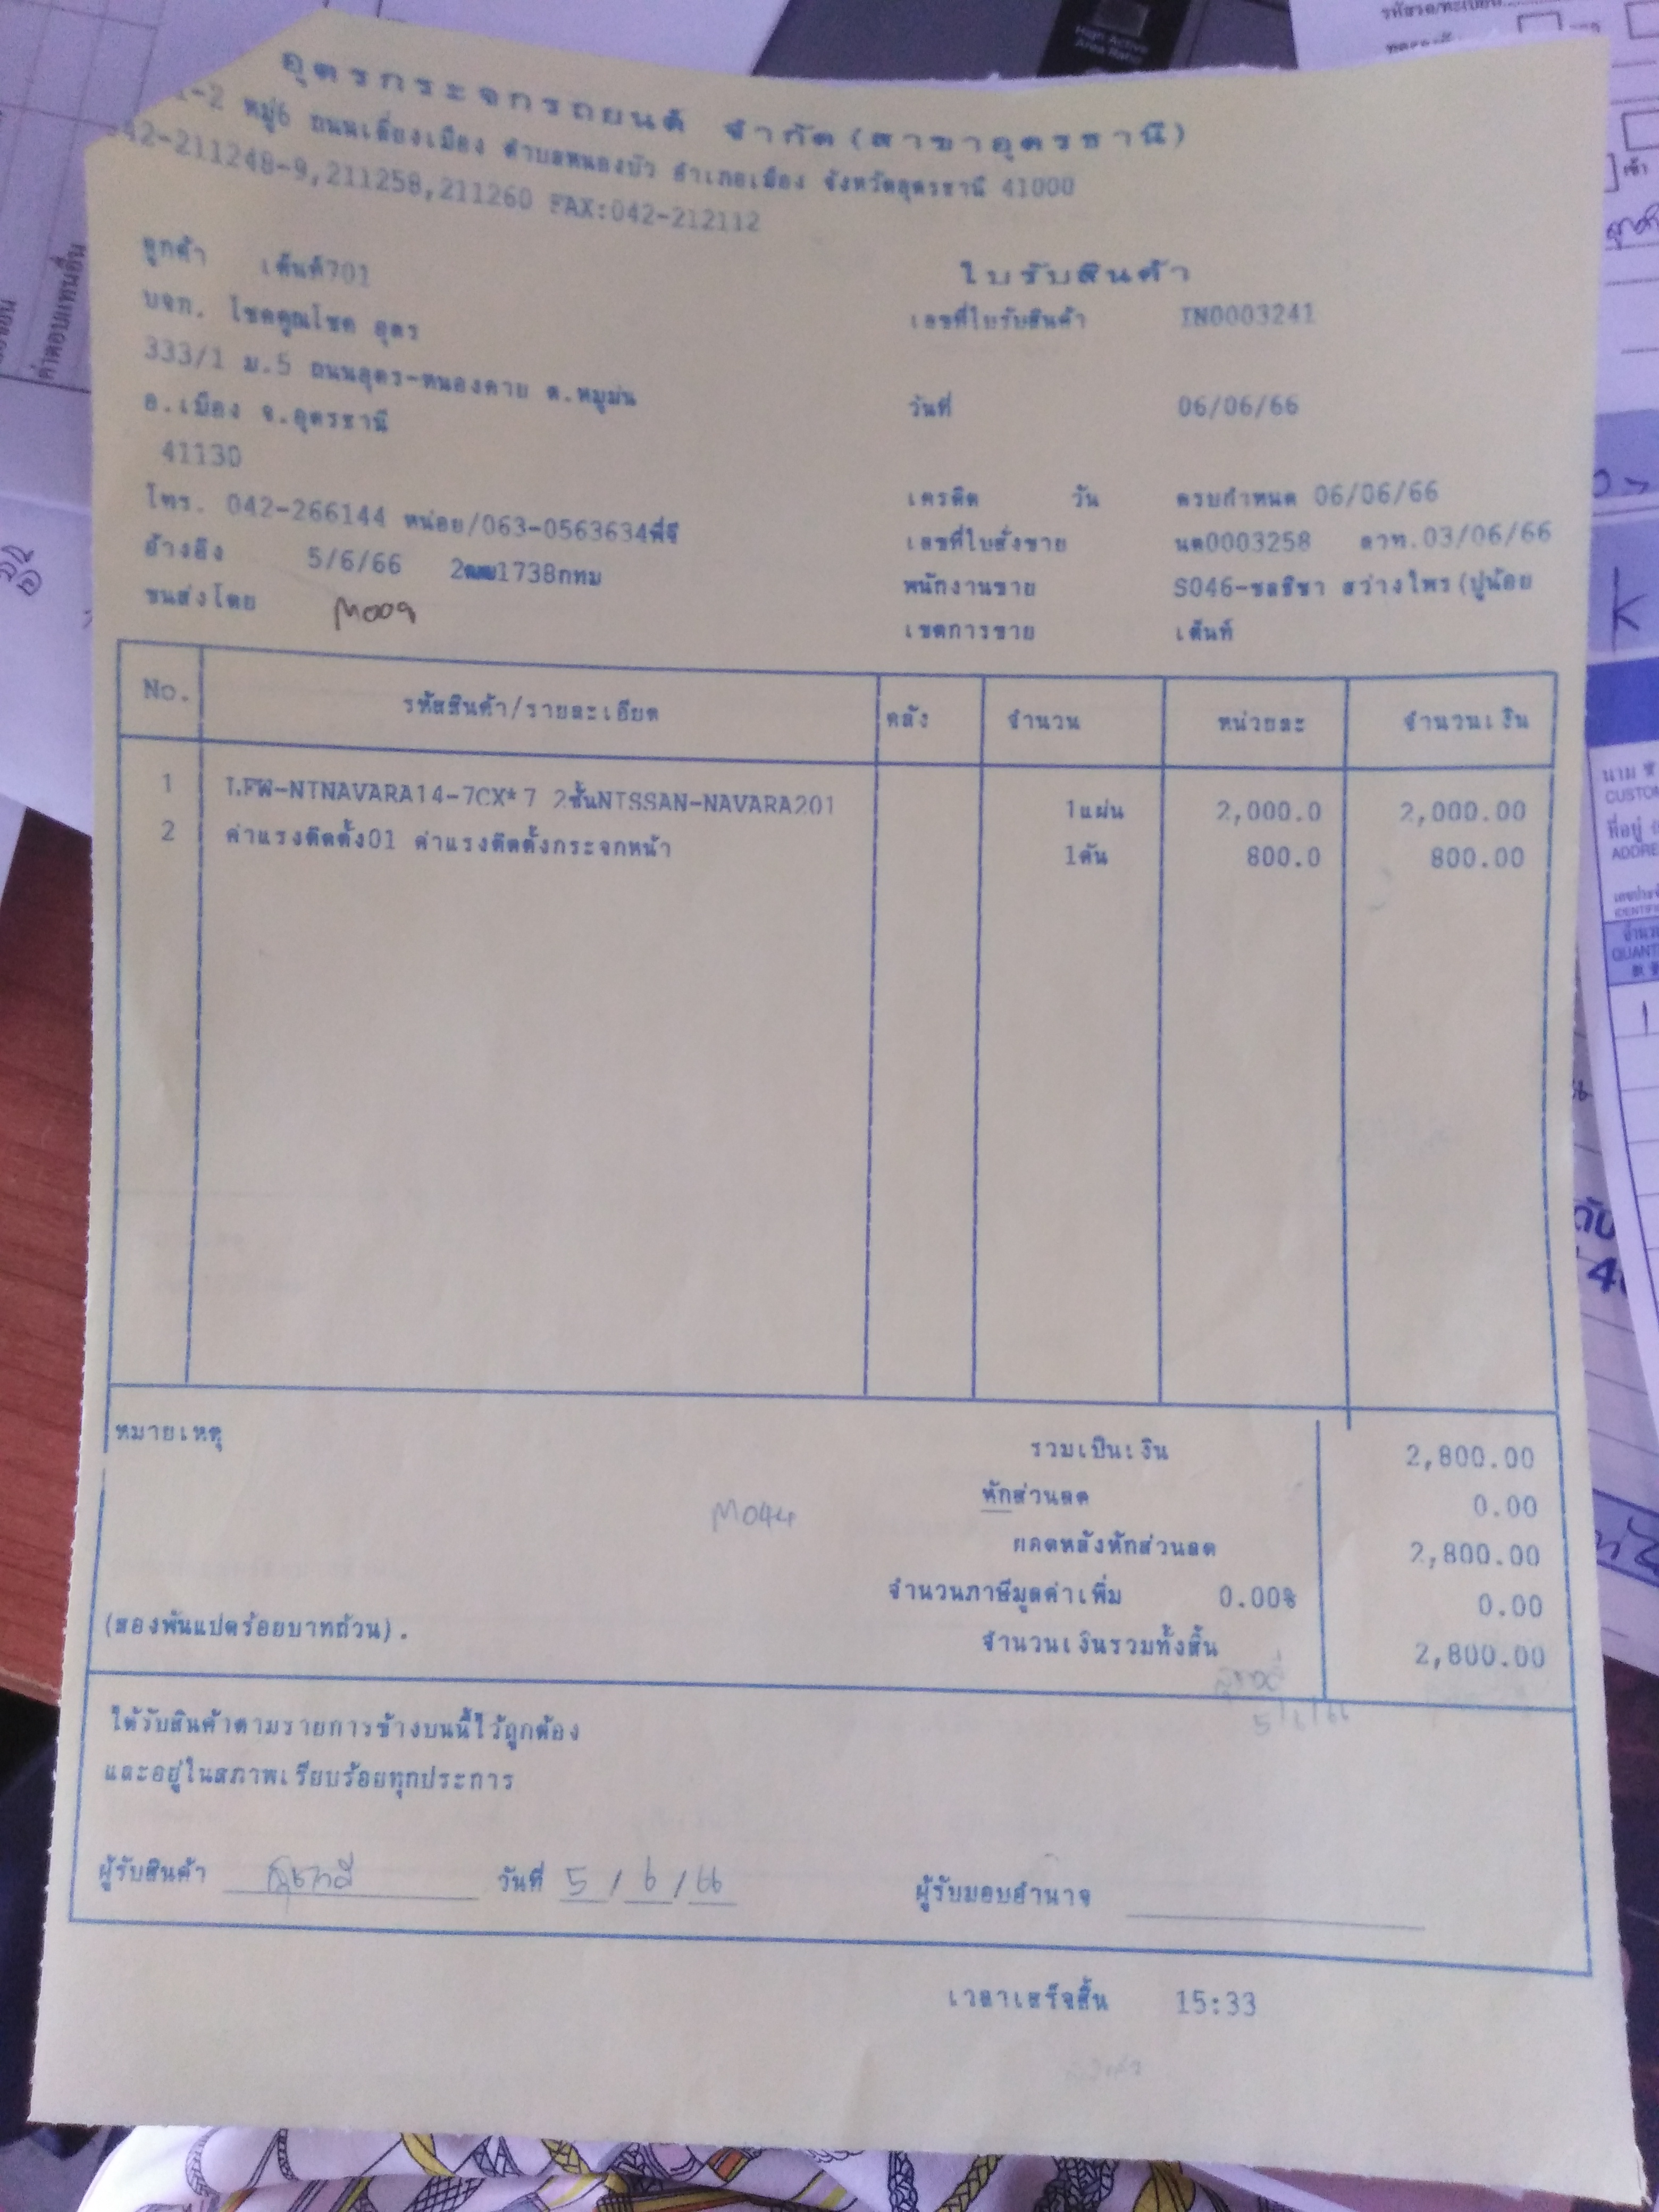 อุดรกระจกรถยนต์ จำกัด(สาขาอุดรธานี)
1-2 หมู่6 ถนนเลี่ยงเมือง ตำบลหนองบัว อำเภอเมือง จังหวัดอุดรธานี 41000
42-211248-9,211258,211260 FAX:042-212112
ใบรับสินค้า
ลูกค้า เต็นท์701
บจก. โชคคูณโชค อุดร
เลขที่ใบรับสินค้า IN0003241
333/1 ม.5 ถนนอุดร-หนองคาย ต.หมูม่น
อ.เมือง จ.อุดรธานี
วันที่ 06/06/66
41130
เครดิต วัน ครบกำหนด 06/06/66
โทร. 042-266144 หน่อย/063-0563634พี่จี
เลขที่ใบสั่งขาย นต0003258 ลวท.03/06/66
อ้างอิง 5/6/66 1738กทม
พนักงานขาย S046-ชลธิชา สว่างไพร(ปูน้อย
ขนส่งโดย M009
เขตการขาย เต็นท์
No. รหัสสินค้า/รายละเอียด คลัง จำนวน หน่วยละ จำนวนเงิน
1 LFW-NINAVARA14-7CX*7 2ชั้นNISSAN-NAVARA201 1แผ่น 2,000.0 2,000.00
2 ค่าแรงติดตั้ง01 ค่าแรงติดตั้งกระจกหน้า 1คัน 800.0 800.00
หมายเหตุ
รวมเป็นเงิน 2,800.00
หักส่วนลด 0.00
M044
ยอดหลังหักส่วนลด 2,800.00
จำนวนภาษีมูลค่าเพิ่ม 0.00% 0.00
(สองพันแปดร้อยบาทถ้วน).
จำนวนเงินรวมทั้งสิ้น 2,800.00
5/6/66
ได้รับสินค้าตามรายการข้างบนนี้ไว้ถูกต้อง
และอยู่ในสภาพเรียบร้อยทุกประการ
ผู้รับสินค้า วันที่ 5/6/66 ผู้รับมอบอำนาจ
เวลาเสร็จสิ้น 15:33